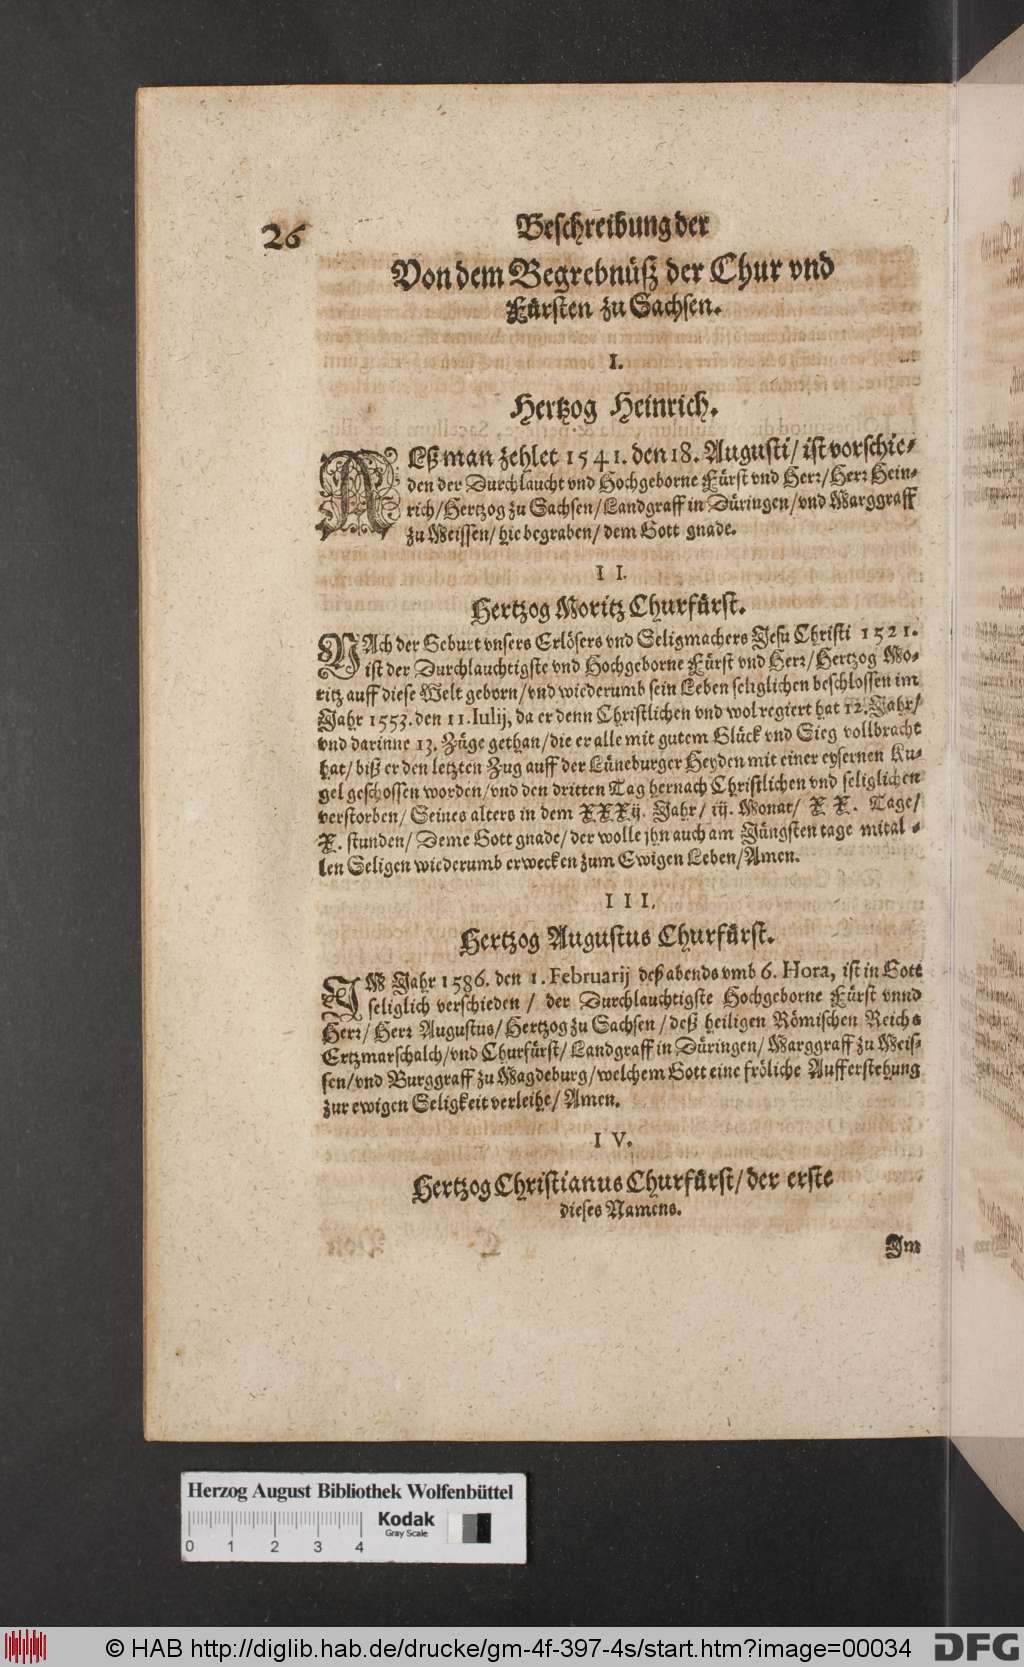 26
Beschreibung der
Von dem Begrebnüß der Chur vnd
Fürsten zu Sachsen.
I.
Hertzog Heinrich.
ALß man zehlet 1541. den 18. Augusti/ ist vorschie-
den der Durchlaucht vnd Hochgeborne Fürst vnd Herr/ Herr Hein-
rich/ Hertzog zu Sachsen/ Landgraff in Düringen/ vnd Marggraff
zu Meissen/ hie begraben/ dem Gott gnade.
II.
Hertzog Moritz Churfürst.
NAch der Geburt vnsers Erlösers vnd Seligmachers Jesu Christi 1521.
ist der Durchlauchtigste vnd Hochgeborne Fürst vnd Herr/ Hertzog Mo-
ritz auff diese Welt geborn/ vnd wiederumb sein Leben seliglichen beschlossen im
Jahr 1553. den 11. Iulij, da er denn Christlichen vnd wol regiert hat 12. Jahr/
vnd darinne 13. Züge gethan/ die er alle mit gutem Glück vnd Sieg vollbracht
hat/ biß er den letzten Zug auff der Lüneburger Heyden mit einer eysernen Ku-
gel geschossen worden/ vnd den dritten Tag hernach Christlichen vnd seliglichen
verstorben/ Seines alters in dem XXXij. Jahr/ iij. Monat/ XX. Tage/
X. stunden/ Deme Gott gnade/ der wolle jhn auch am Jüngsten tage mit al-
len Seligen wiederumb erwecken zum Ewigen Leben/ Amen.
III.
Hertzog Augustus Churfürst.
IM Jahr 1586. den 1. Februarij deß abends vmb 6. Hora, ist in Gott
seliglich verschieden/ der Durchlauchtigste Hochgeborne Fürst vnnd
Herr/ Herr Augustus/ Hertzog zu Sachsen/ deß heiligen Römischen Reichs
Ertzmarschalch/ vnd Churfürst/ Landgraff in Düringen/ Marggraff zu Meis-
sen/ vnd Burggraff zu Magdeburg/ welchem Gott eine fröliche Aufferstehung
zur ewigen Seligkeit verleihe/ Amen.
IV.
Hertzog Christianus Churfürst/ der erste
dieses Namens.
Im
Herzog August Bibliothek Wolfenbüttel
Kodak
Gray Scale
0 1 2 3 4
© HAB http://diglib.hab.de/drucke/gm-4f-397-4s/start.htm?image=00034
DFG